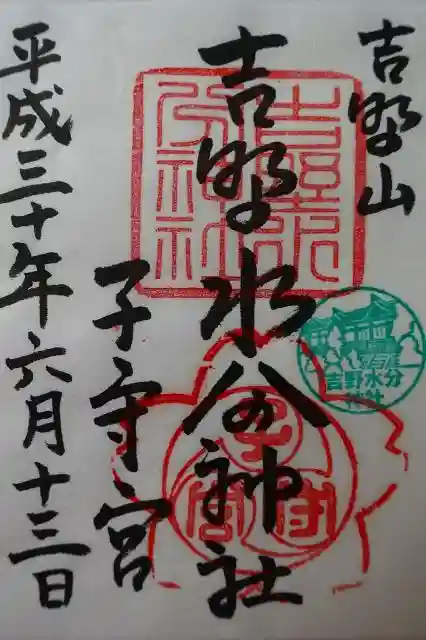 吉野山
吉野水分神社
子守宮
平成三十年六月十三日
吉野水分神社
吉野水分
神社
子守宮